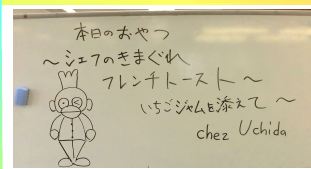 本日のおやつ
～シェフのきまぐれ
フレンチトースト～
いちごジャムを添えて～
chez Uchida